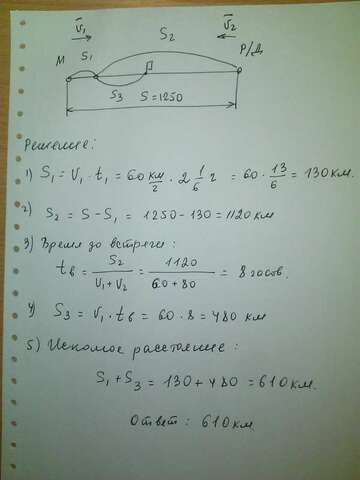 V̄₁ S₂ V̄₂
M S₁ Р/Д
S₃ S=1250
Решение:
1) S₁ = V₁·t₁ = 60 км/г · 2 1/6 г = 60 · 13/6 = 130 км.
2) S₂ = S – S₁ = 1250 – 130 = 1120 км
3) Время до встречи:
tв = S₂/(V₁+V₂) = 1120/(60+80) = 8 часов.
4) S₃ = V₁·tв = 60·8 = 480 км
5) Искомое расстояние:
S₁ + S₃ = 130 + 480 = 610 км.
Ответ: 610 км.